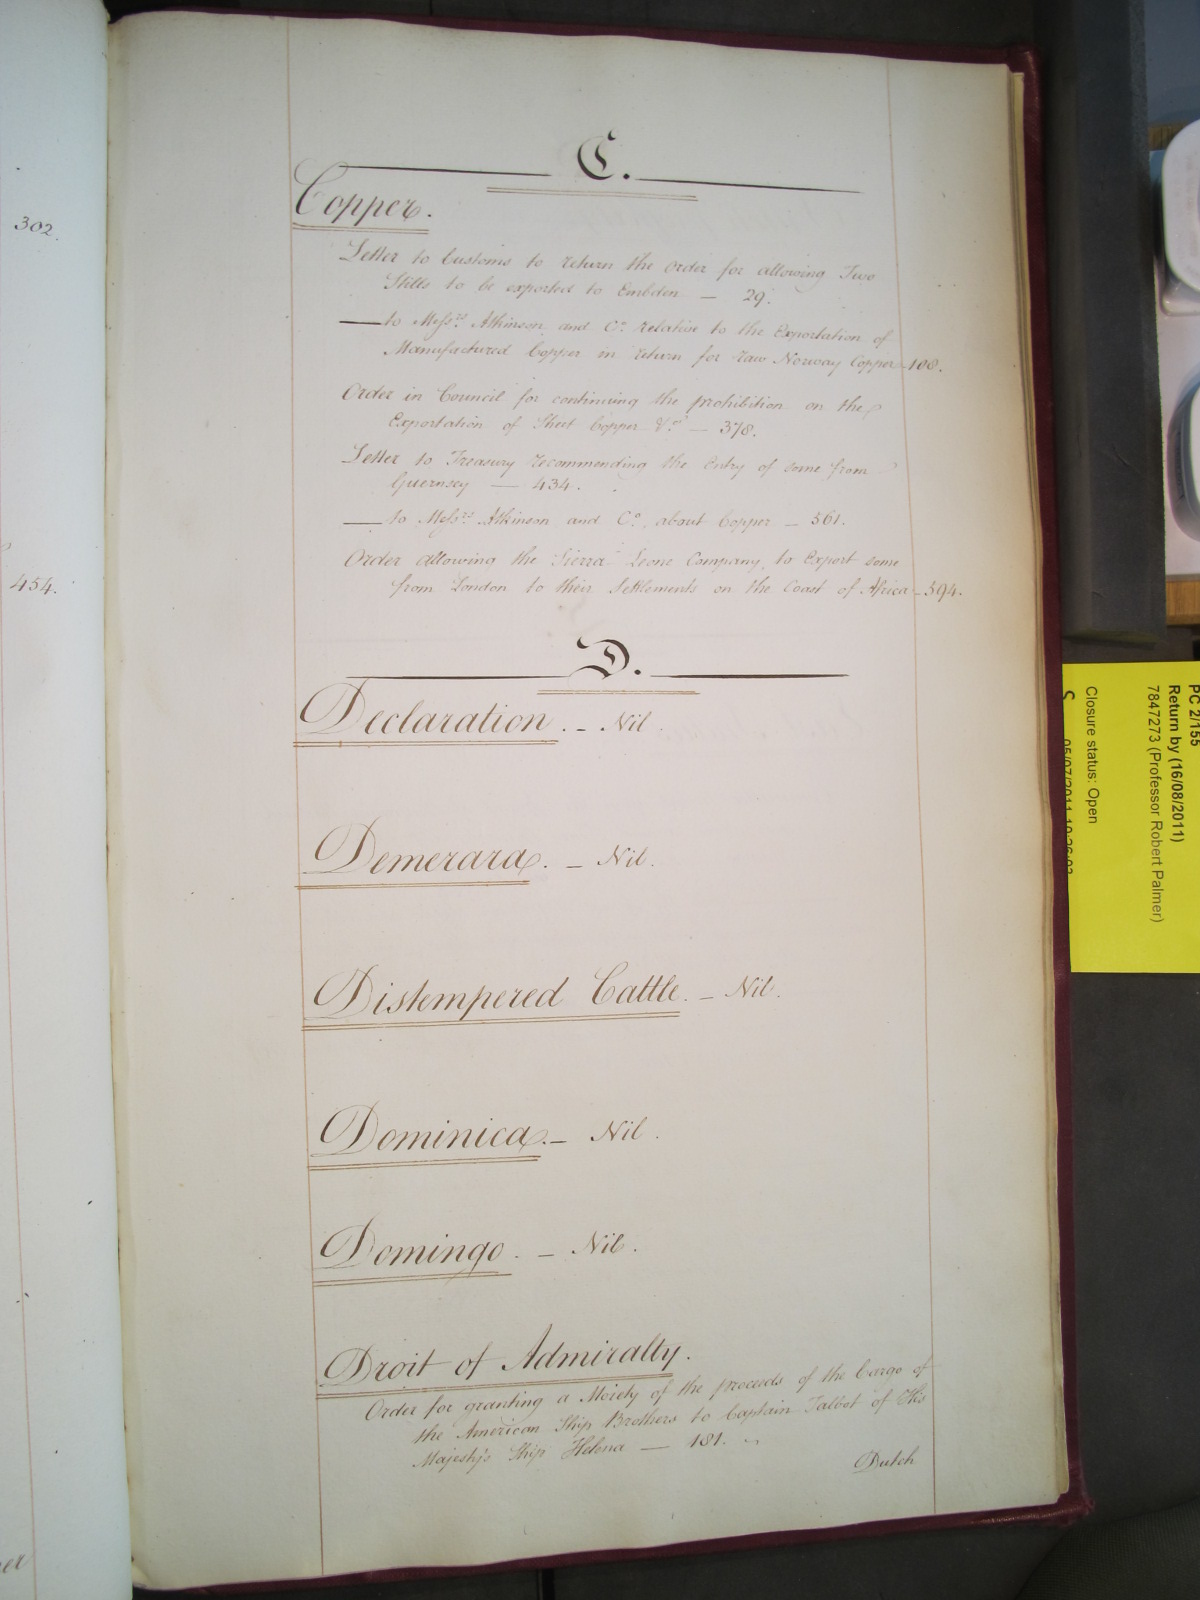 302.
454.
C.
Copper.
Letter to Customs to return the Order for allowing Two
Stills to be exported to Embden — 29.
— to Mess.rs Atkinson and C.o relative to the Exportation of
Manufactured Copper in return for raw Norway Copper - 108.
Order in Council for continuing the prohibition on the
Exportation of Sheet Copper &.c — 378.
Letter to Treasury recommending the Entry of some from
Guernsey — 434.
— to Mess.rs Atkinson and C.o about Copper — 561.
Order allowing the Sierra Leone Company, to Export some
from London to their Settlements on the Coast of Africa - 594.
D.
Declaration. - Nil.
Demerara. - Nil.
Distempered Cattle. - Nil.
Dominica. - Nil.
Domingo. - Nil.
Droit of Admiralty.
Order for granting a Moiety of the proceeds of the Cargo of
the American Ship Brothers to Captain Talbot of His
Majesty's Ship Helena — 181.
Dutch
PC 2/155
Return by (16/08/2011)
7847273 (Professor Robert Palmer)
Closure status: Open